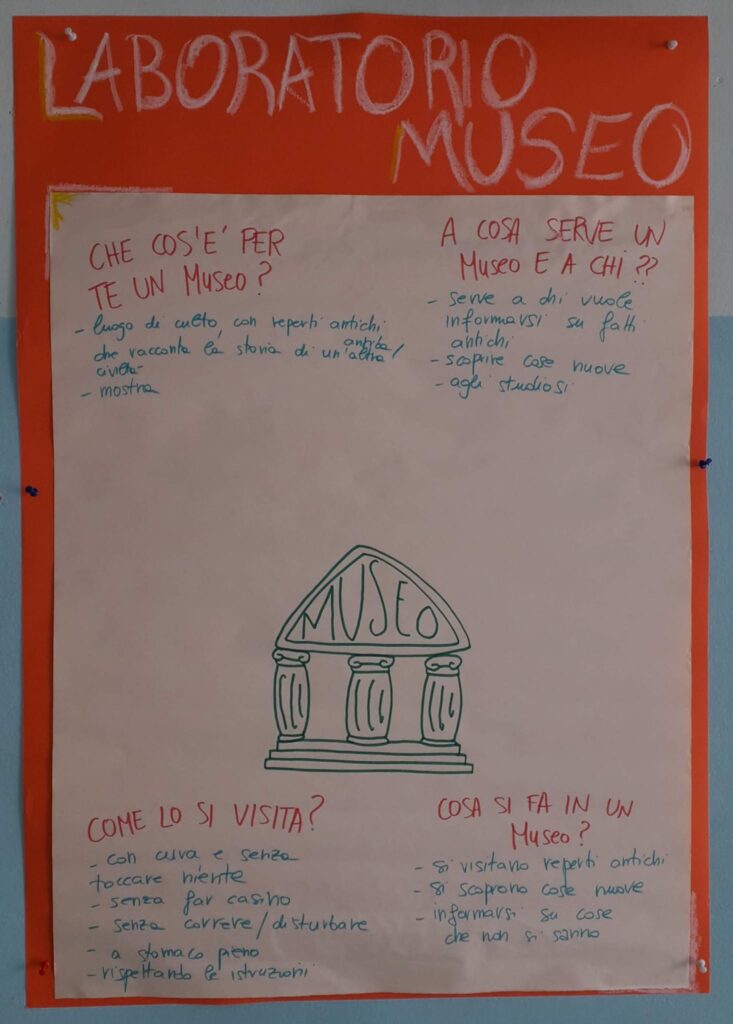 LABORATORIO
MUSEO
CHE COS'E' PER
TE UN MUSEO?
- luogo di culto, con reperti antichi
che racconta la storia di un'altra/
antica
civiltà
- mostra
A COSA SERVE UN
MUSEO E A CHI??
- serve a chi vuole
informarsi su fatti
antichi
- scoprire cose nuove
- agli studiosi
MUSEO
COME LO SI VISITA?
- con cura e senza
toccare niente
- senza far casino
- senza correre/disturbare
- a stomaco pieno
- rispettando le istruzioni
COSA SI FA IN UN
MUSEO?
- si visitano reperti antichi
- si scoprono cose nuove
- informarsi su cose
che non si sanno